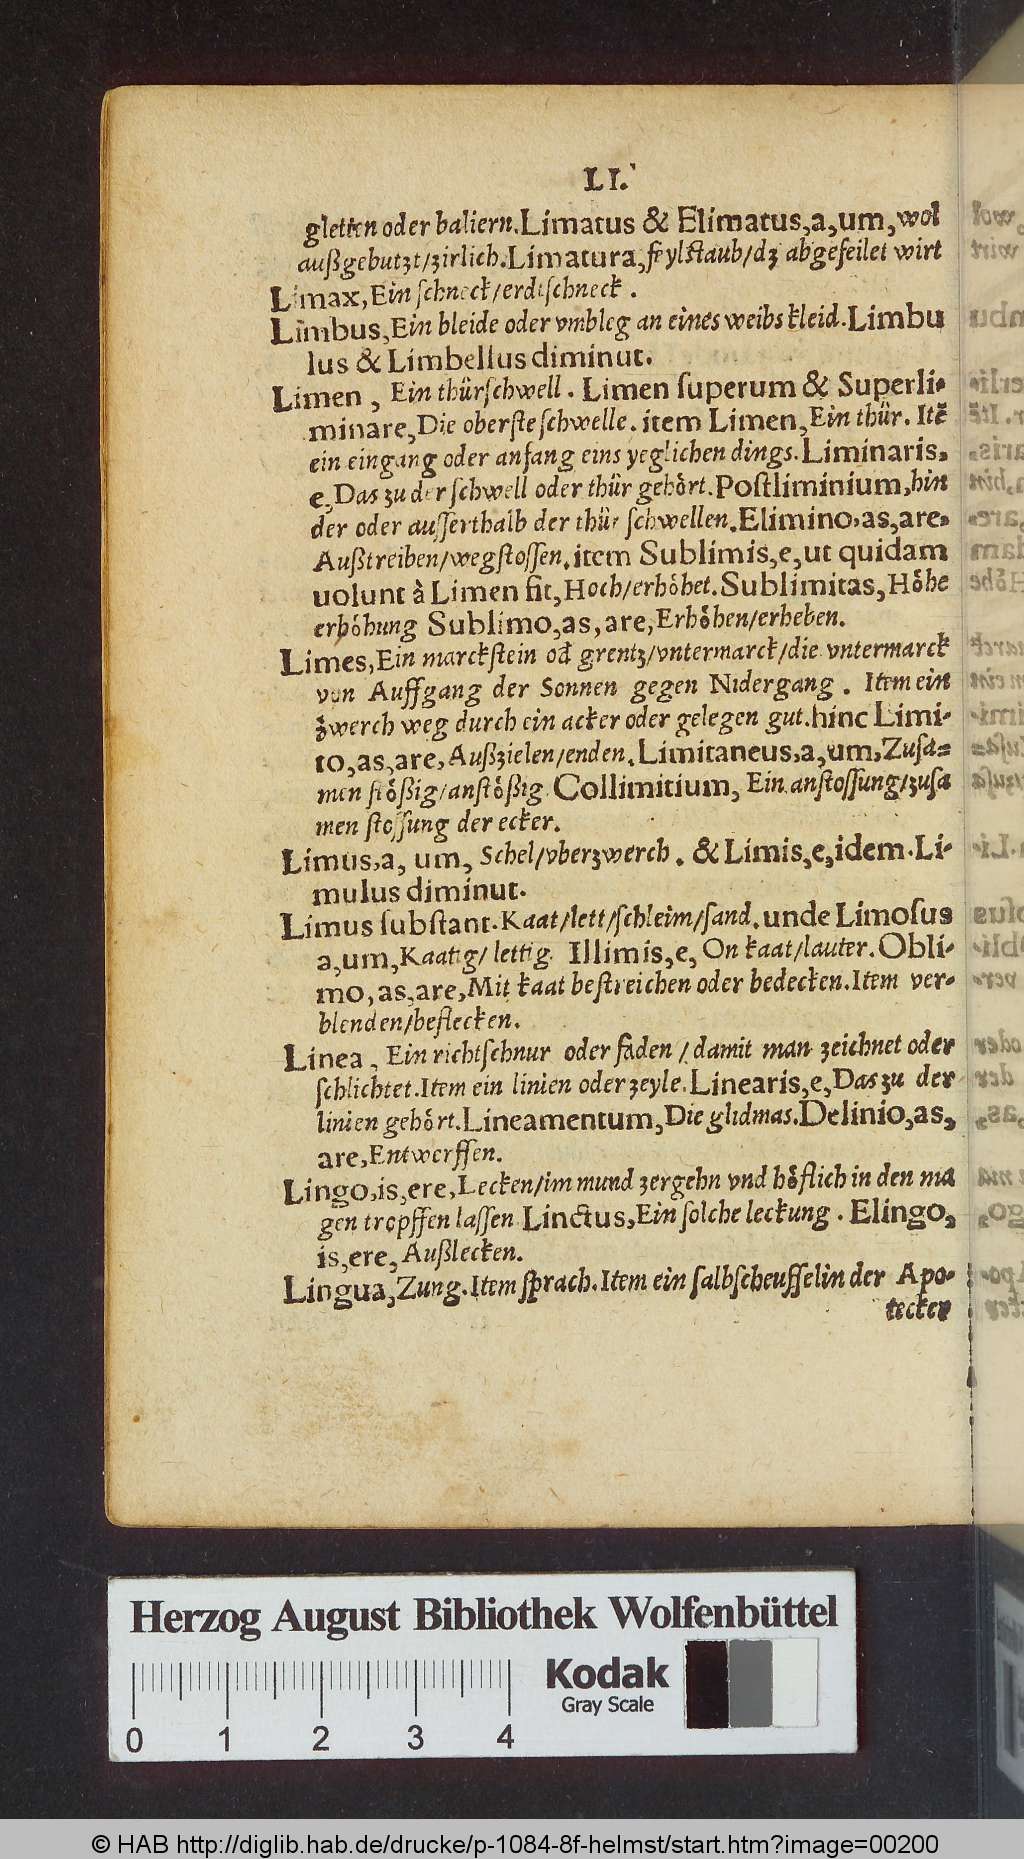 LI.
gletten oder baliern. Limatus & Elimatus,a,um, wol
außgebutzt/zirlich. Limatura, feylstaub/dz abgefeilet wirt
Limax, Ein schneck/erdtschneck.
Limbus, Ein bleide oder vmbleg an eines weibs kleid. Limbu
lus & Limbellus diminut.
Limen, Ein thürschwell. Limen superum & Superli-
minare, Die oberste schwelle. item Limen, Ein thür. Itē
ein eingang oder anfang eins yeglichen dings. Liminaris,
e, Das zu der schwell oder thür gehört. Postliminium, hin
der oder ausserthalb der thür schwellen. Elimino,as,are,
Außtreiben/wegstossen. item Sublimis,e, ut quidam
uolunt à Limen fit, Hoch/erhöhet. Sublimitas, Höhe
erhöhung Sublimo,as,are, Erhöhen/erheben.
Limes, Ein marckstein od grentz/vntermarck/die vntermarck
von Auffgang der Sonnen gegen Nidergang. Item ein
zwerch weg durch ein acker oder gelegen gut. hinc Limi-
to,as,are, Außzielen/enden. Limitaneus,a,um, Zusā-
men stößig/anstößig Collimitium, Ein anstossung/zusa
men stossung der ecker.
Limus,a, um, Schel/vberzwerch. & Limis,e,idem. Li-
mulus diminut.
Limus substant. Kaat/lett/schleim/sand. unde Limosus
a,um, Kaatig/ lettig. Illimis,e, On kaat/lauter. Obli-
mo,as,are, Mit kaat bestreichen oder bedecken. Item ver-
blenden/beflecken.
Linea, Ein richtschnur oder faden / damit man zeichnet oder
schlichtet. Item ein linien oder zeyle. Linearis,e, Das zu der
linien gehört. Lineamentum, Die glidmas. Delinio,as,
are, Entwerffen.
Lingo,is,ere, Lecken/im mund zergehn vnd höflich in den ma
gen tropffen lassen Linctus, Ein solche leckung. Elingo,
is,ere, Außlecken.
Lingua, Zung. Item sprach. Item ein salbscheuffelin der Apo-
tecker
Herzog August Bibliothek Wolfenbüttel
Kodak
Gray Scale
0 1 2 3 4
© HAB http://diglib.hab.de/drucke/p-1084-8f-helmst/start.htm?image=00200